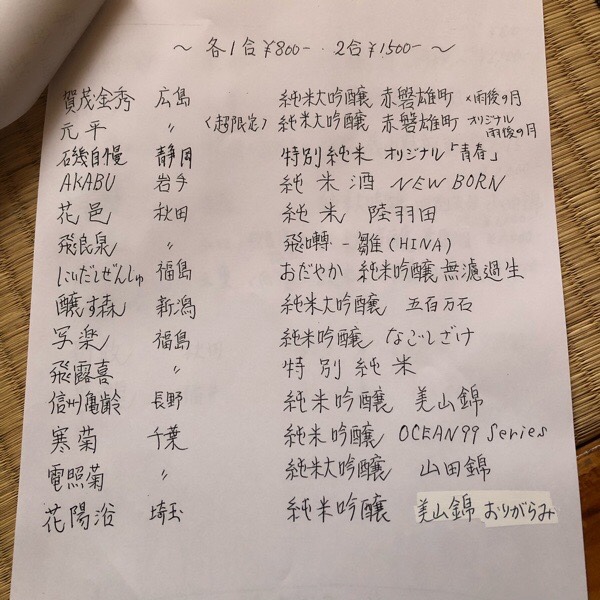 ～ 各1合¥800- ・ 2合¥1,500- ～
賀茂金秀 広島 純米大吟醸 赤磐雄町 ×雨後の月
元平 〃 〈超限定〉 純米大吟醸 赤磐雄町 オリジナル 雨後の月
磯自慢 静岡 特別純米 オリジナル「青春」
AKABU 岩手 純米酒 NEW BORN
花邑 秋田 純米 陸羽田
飛良泉 〃 飛囀 - 雛(HINA)
にいだしぜんしゅ 福島 おだやか 純米吟醸 無濾過生
醸す森 新潟 純米大吟醸 五百万石
写楽 福島 純米吟醸 なごしざけ
飛露喜 〃 特別純米
信州亀齢 長野 純米吟醸 美山錦
寒菊 千葉 純米吟醸 OCEAN99 Series
電照菊 〃 純米大吟醸 山田錦
花陽浴 埼玉 純米吟醸 美山錦 おりがらみ